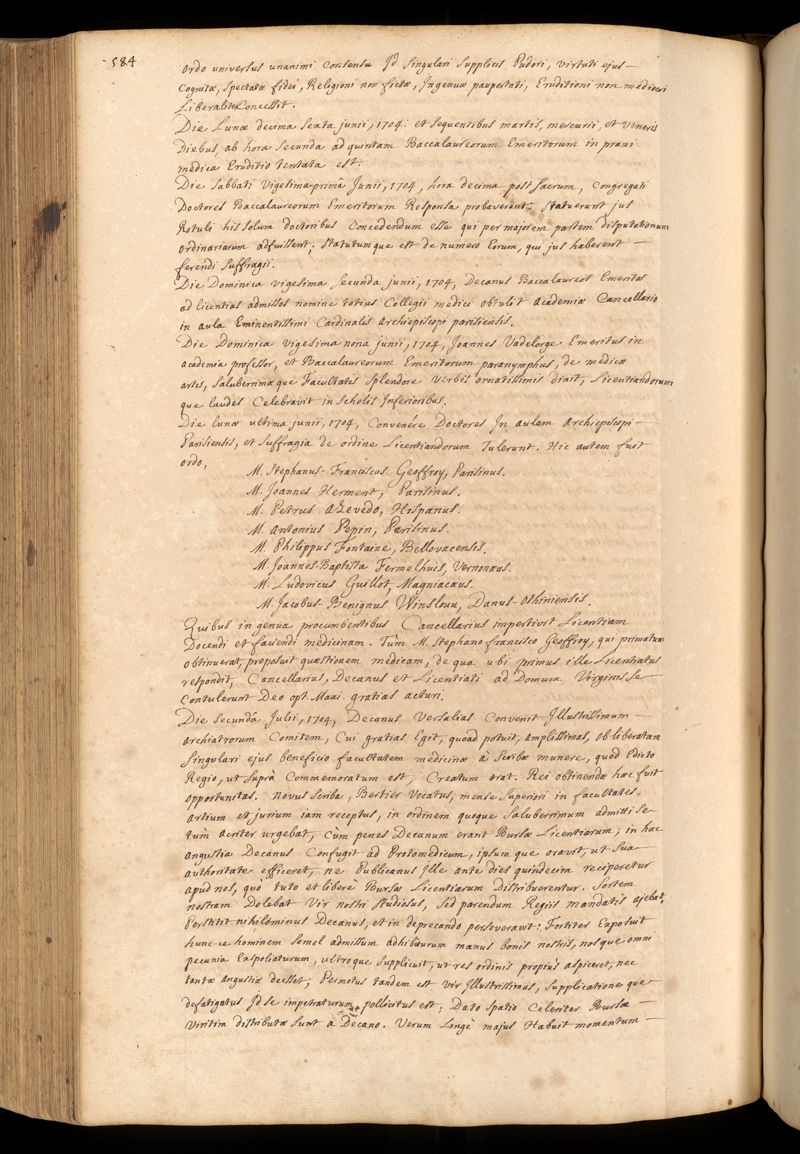 584
Ordo universus unanimi Consensu Id Singulari Supplicis Pudori, Virtuti ejus
Cognitæ, Spectatæ fidei, Religioni non fictæ, Ingenuæ paupertati, Eruditioni non mediocri
Liberaliter Concessit.
Die Lunæ decima Sexta junii, 1704: et Sequentibus martis, mercurii, et Veneris
Diebus, ab hora Secunda ad quintam Baccalaureorum Emeritorum in praxi
medica Eruditio tentata est.
Die Sabbati Vigesima primâ Junii, 1704, hora decima post Sacrum, Congregati
Doctores Baccalaureorum Emeritorum Responsa probaverunt: Statuerunt jus
Rotuli his solum doctoribus Concedendum esse qui per majorem partem disputationum
ordinariarum adfuissent; Statutumque est de numero Eorum, qui jus haberent
ferendi Suffragii.
Die Dominica vigesima Secunda junii, 1704, Decanus Baccalaureos Emeritos
ad licentias admissos nomine totius Collegii medici obtulit Academiæ Cancellario
in aula Eminentissimi Cardinalis Archiepiscopi parisiensis.
Die Dominica vigesima nona junii, 1704, Joannes Vadelorge Emeritus in
academia professor, et Baccalaureorum Emeritorum paranymphus, de medicæ
artis, Saluberrimæque Facultatis Splendore Verbis ornatissimis dixit, Licentiandorum
que laudes Celebravit in Scholis Inferioribus.
Die lunæ ultima junii, 1704, Convenére Doctores In aulam Archiepiscopi
Parisiensis, et Suffragia de ordine Licentiandorum Tulerunt. Hic autem fuit
ordo,
M. Stephanus-Franciscus Geoffroy, Parisinus.
M. Joannes Herment, Parisinus.
M. Petrus Azevedo, Hispanus.
M. Antonius Pepin, Parisinus.
M. Philippus Fontaine, Bellovacensis.
M. Joannes-Baptista Fermelhuis, Vernonæus.
M. Ludovicus Guillot, Magniacæus.
M. Jacobus-Benignus Winslouu, Danus-Othiniensis.
Quibus in genua procumbentibus Cancellarius impertivit Licentiam
Docendi et faciendi medicinam. Tùm M. Stephano francisco Geoffroy, qui primatum
obtinuerat, proposuit quæstionem medicam, de qua ubi primus ille Licentiatus
respondit, Cancellarius, Decanus et Licentiati ad Domum Virginis se
Contulerunt Deo opt. Maxi. gratias acturi.
Die Secundâ Julii, 1704, Decanus Versalias Convenit Illustrissimum
archiatrorum Comitem, Cui gratias Egit, quoad potuit, amplissimas, ob liberatam
Singulari ejus beneficio facultatem medicinæ à Scribæ munere, quod Edicto
Regio, ut Suprà Commemoratum est, Creatum erat. Rei obtinendæ hæc fuit
opportunitas. Novus Scriba, Bertier Vocatus, mense Superiori in facultates
Artium et jurium iam receptus, in ordinem quoque Saluberrimum admitti se
tum acriter urgebat, cùm penes Decanum erant Bursæ Licentiarum; in hac
angustia Decanus Confugit ad Protomedicum, ipsumque oravit, ut Sua
authoritate efficeret, ne Publicanus Ille ante dies quindecim reciperetur
apud nos, quò tuto et liberè Bursæ Licentiarum Distribuerentur. Sortem
nostram Dolebat Vir nostri Studiosus, Sed parendum Regiis mandatis ajebat.
Perstitit nihilominus Decanus, et in deprecando perseveravit: Fortiter Exposuit
huncce hominem Semel admissum adhibiturum manus bonis nostris, nosque omni
pecunia Exspoliaturum, ultroque Supplicuit, ut res ordinis propiùs aspiceret, nec
tantæ angustiæ deesset; Permotus tandem est vir Illustrissimus, Supplicatione que
defatigatus Id se impetraturum pollicitus est; Dato Spatio Celeriter Bursæ
Viritim distributæ Sunt à Decano. Verum Longè majus Habuit momentum